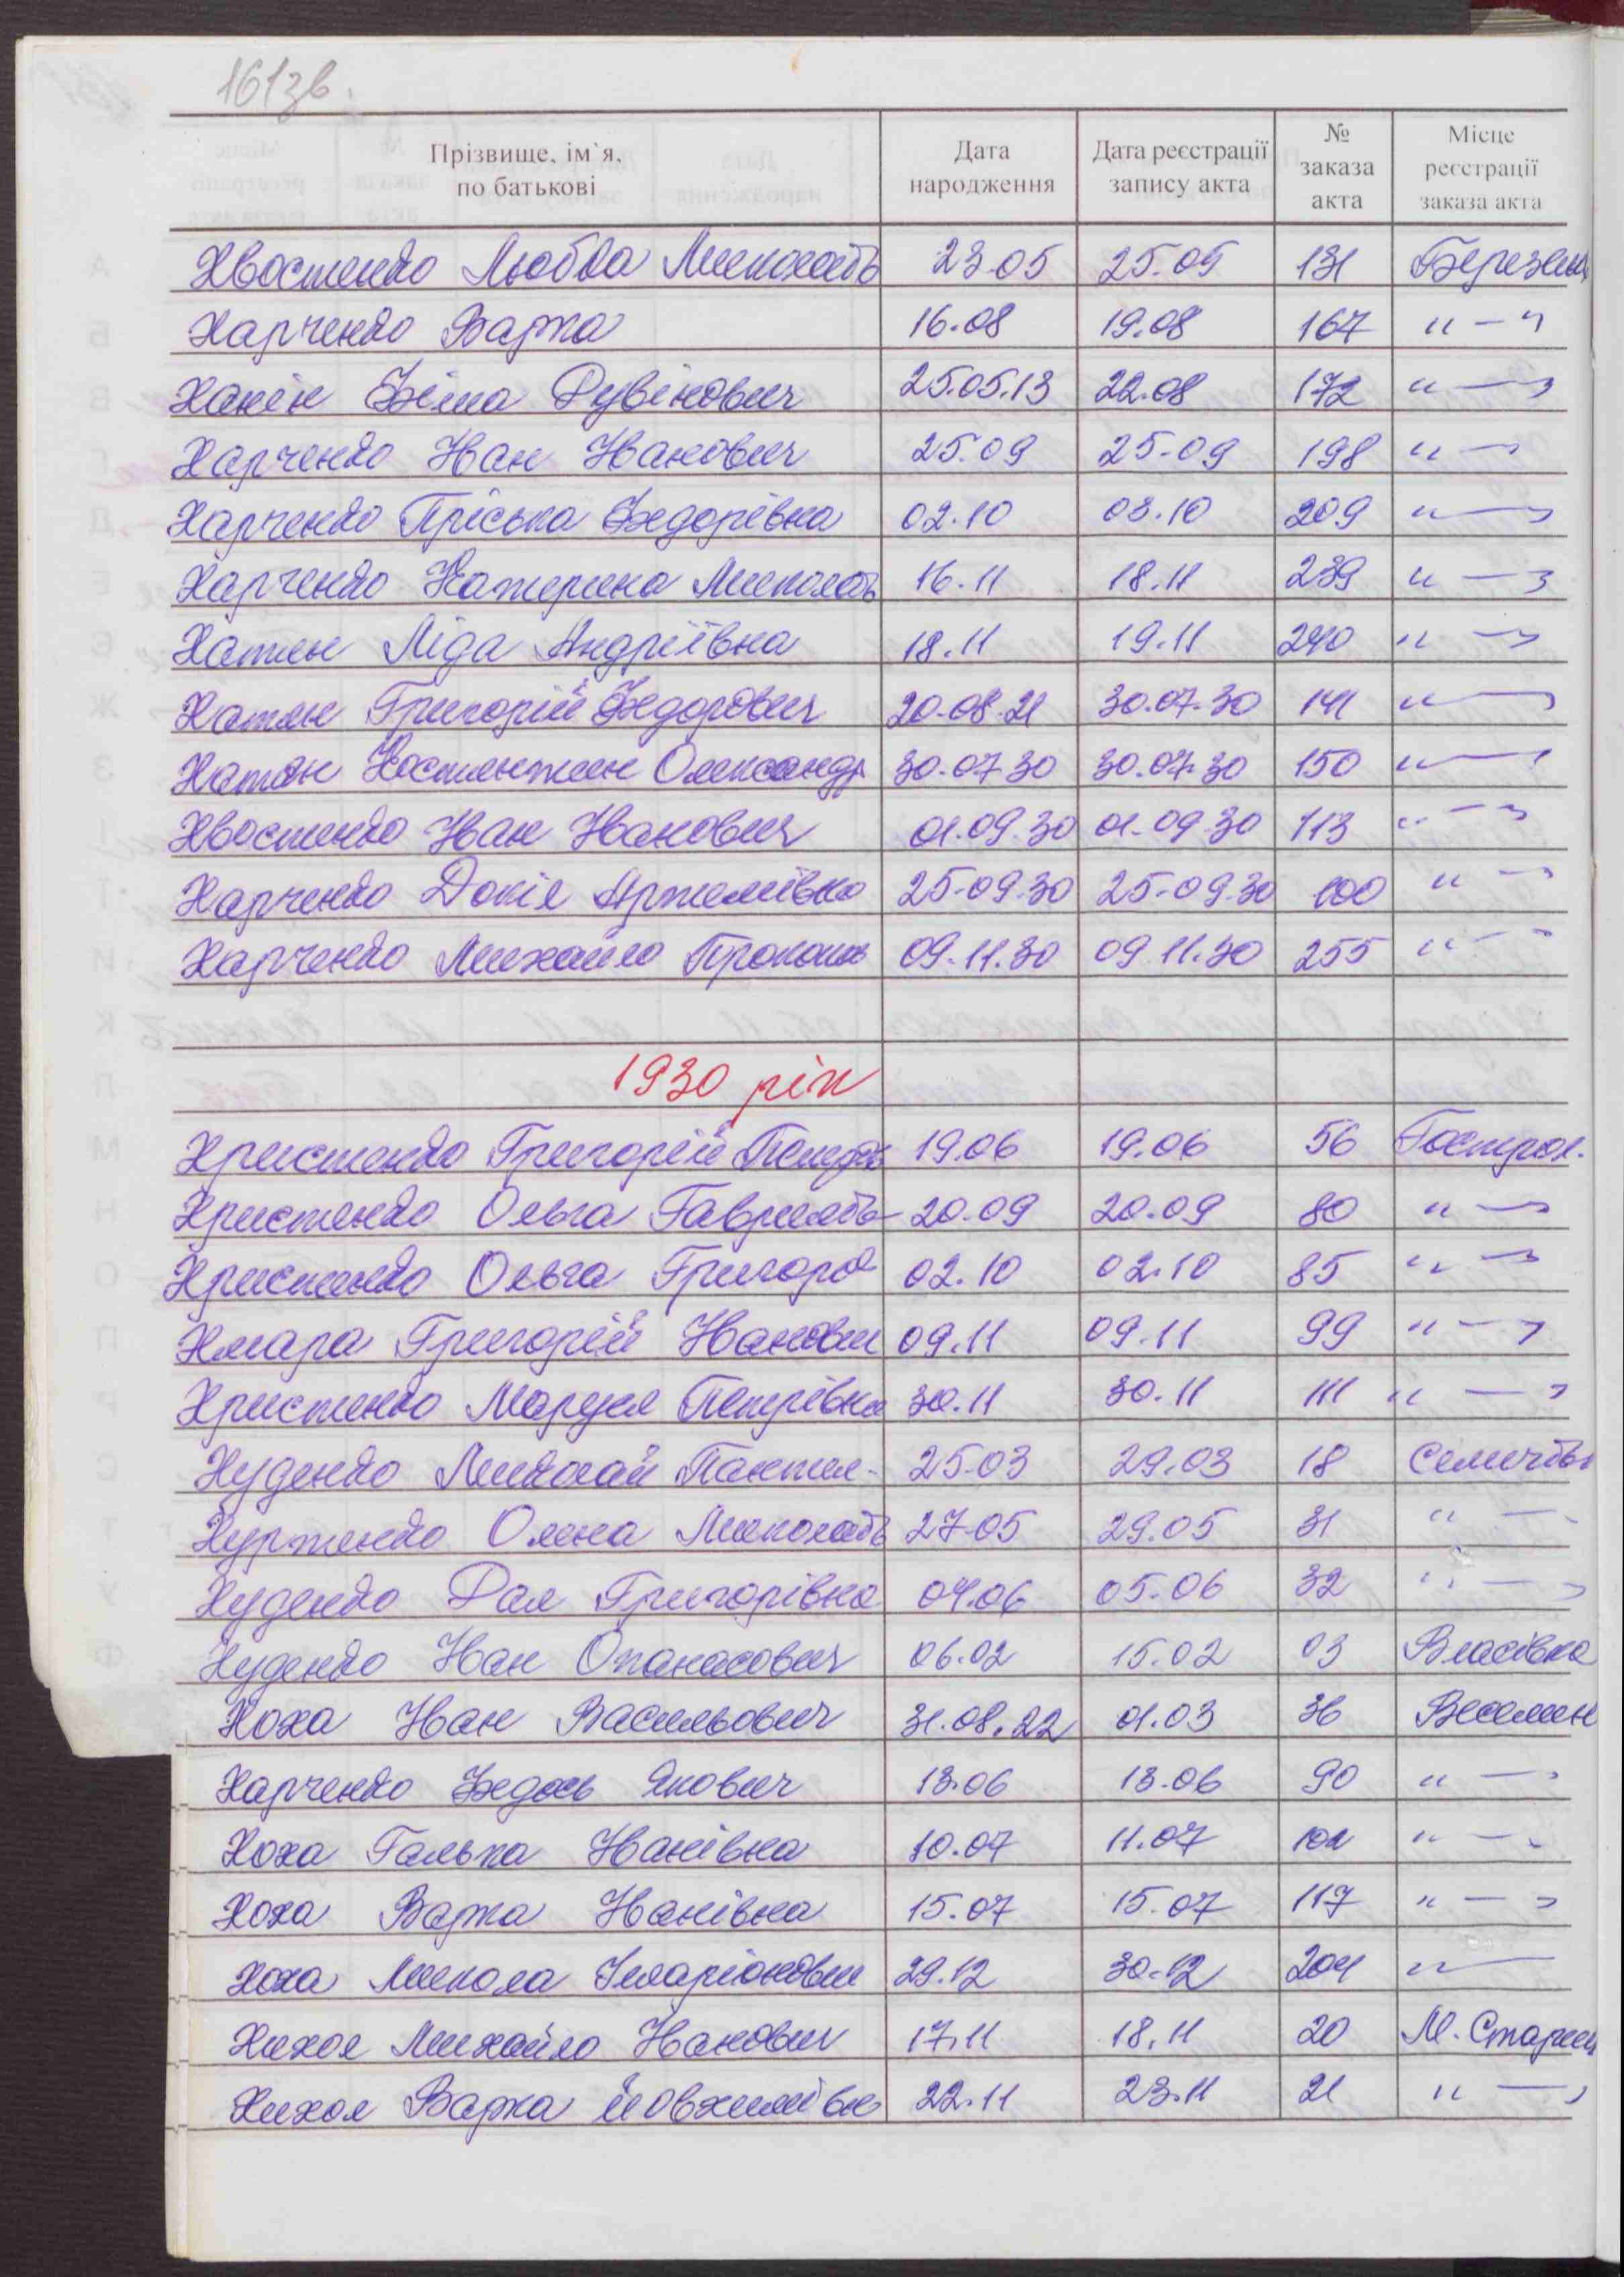 161зв.
Прізвище, ім`я, по батькові Дата народження Дата реєстрації запису акта № заказа акта Місце реєстрації заказа акта
Хвостенко Любва Миколаєв 23.05 25.05 131 Березан
Харченко Варка 16.08 19.08 167 " — "
Ханін Фіма Рувінович 25.05.13 22.08 172 " — "
Харченко Іван Іванович 25.09 25.09 198 " — "
Харченко Пріська Федорівна 02.10 03.10 209 " — "
Харченко Катерина Миколаєв 16.11 18.11 239 " — "
Хатян Ліда Андріївна 18.11 19.11 240 " — "
Хатян Григорій Федорович 20.08.21 30.07.30 141 " — "
Хатян Костянтин Олександр 30.07.30 30.07.30 150 " — "
Хвостенко Іван Іванович 01.09.30 01.09.30 113 " — "
Харченко Докія Артемівна 25.09.30 25.09.30 100 " — "
Харченко Михайло Прокоп 09.11.30 09.11.30 255 " — "
1930 рік
Христенко Григорій Петров 19.06 19.06 56 Гострол.
Христенко Ольга Гаврилів 20.09 20.09 80 " — "
Христенко Ольга Григоро 02.10 02.10 85 " — "
Хмара Григорій Іванови 09.11 09.11 99 " — "
Христенко Маруся Петрівна 30.11 30.11 111 " — "
Худенко Миколай Пантел. 25.03 29.03 18
Хуртенко Олена Миколаєв 27.05 29.05 31 " —
Худенко Рая Григорівна 04.06 05.06 32 " — "
Худенко Іван Опанасович 06.02 15.02 03 Власівка
Хоха Іван Васильович 31.08.22 01.03 36 Веселин
Харченко Федось Якович 13.06 13.06 90 " — "
Хоха Галька Іванівна 10.07 11.07 " — "
Хоха Варка Іванівна 15.07 15.07 117 " — "
Хоха Микола Іларіонови 29.12 30.12 204 " —
Хихоя Михайло Іванович 17.11 18.11 20 М. Стариц
Хихоя Варка Йовхимівн 22.11 23.11 21 " — "